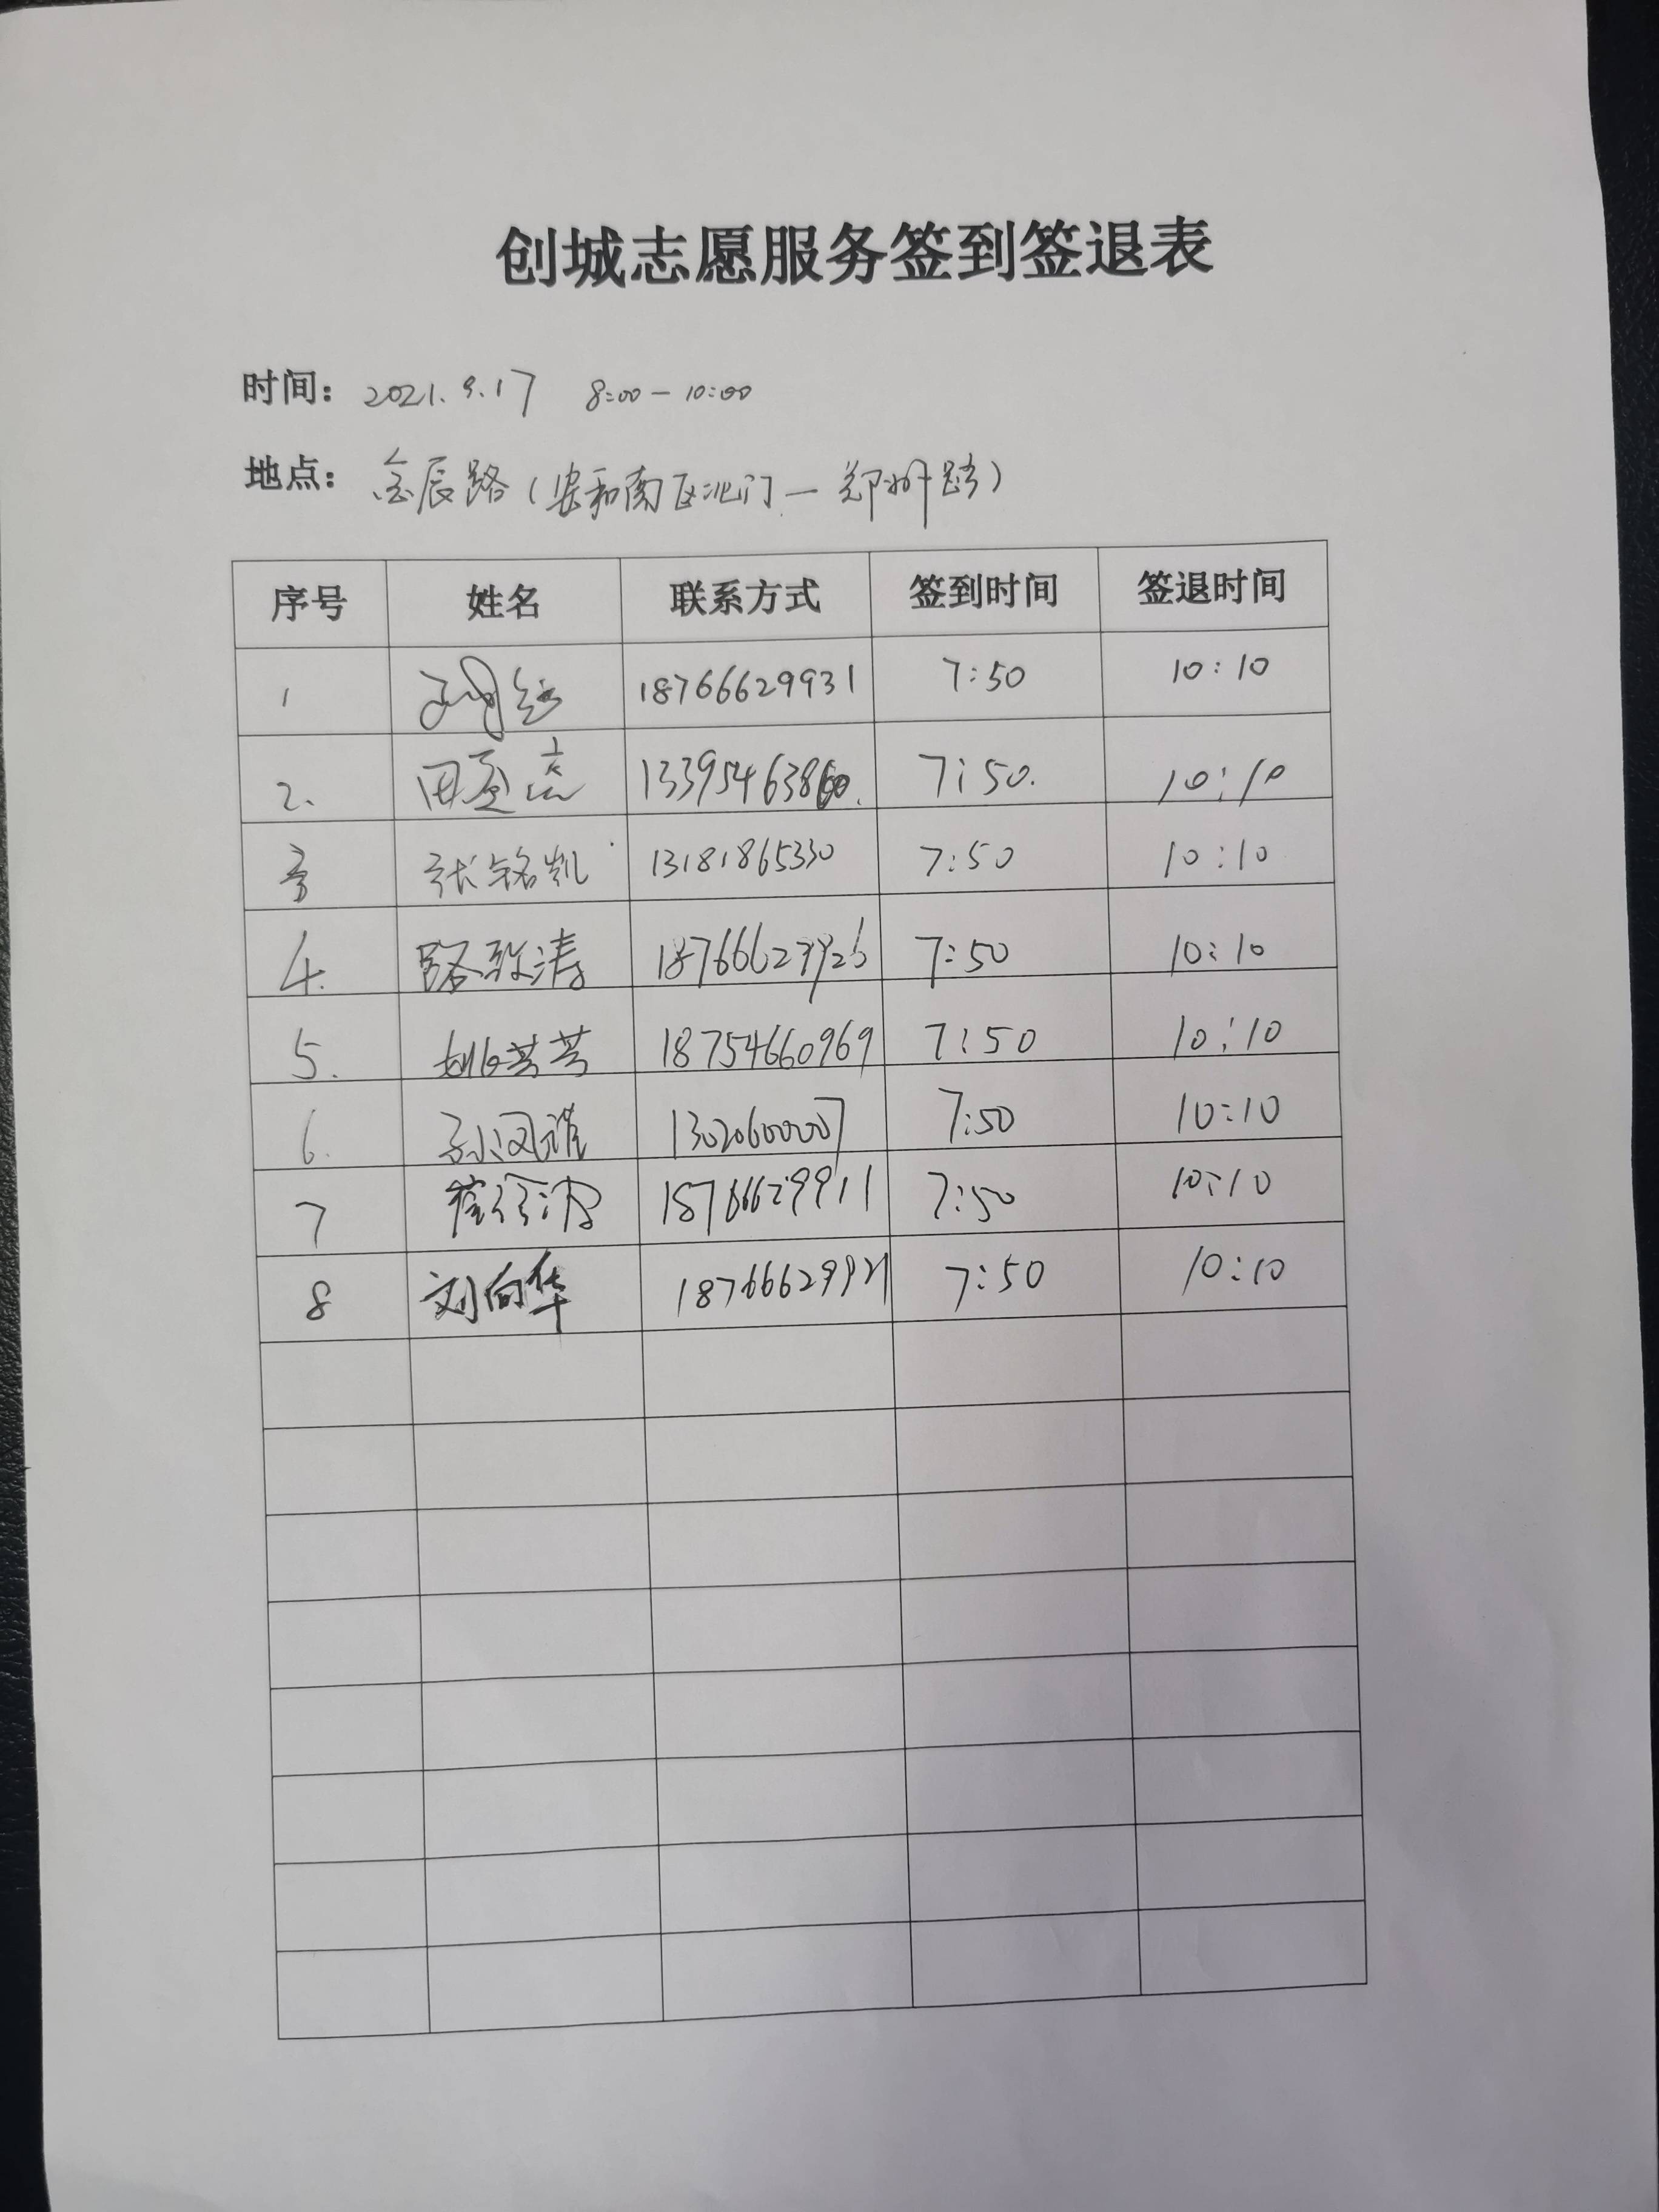 创城志愿服务签到签退表
时间: 2021.9.17 8:00-10:00
地点: 金辰路(安和南区北门-郑州路)
序号 姓名 联系方式 签到时间 签退时间
1 18766629931 7:50 10:10
2. 田亮 7:50. 10:10
3 张铭凯 13181865330 7:50 10:10
4. 路致涛 18766629926 7:50 10:10
5. 姚芳芳 18754660969 7:50 10:10
6. 孙汉 13020600007 7:50 10:10
7 崔 18766629911 7:50 10:10
8 刘向华 18766629921 7:50 10:10